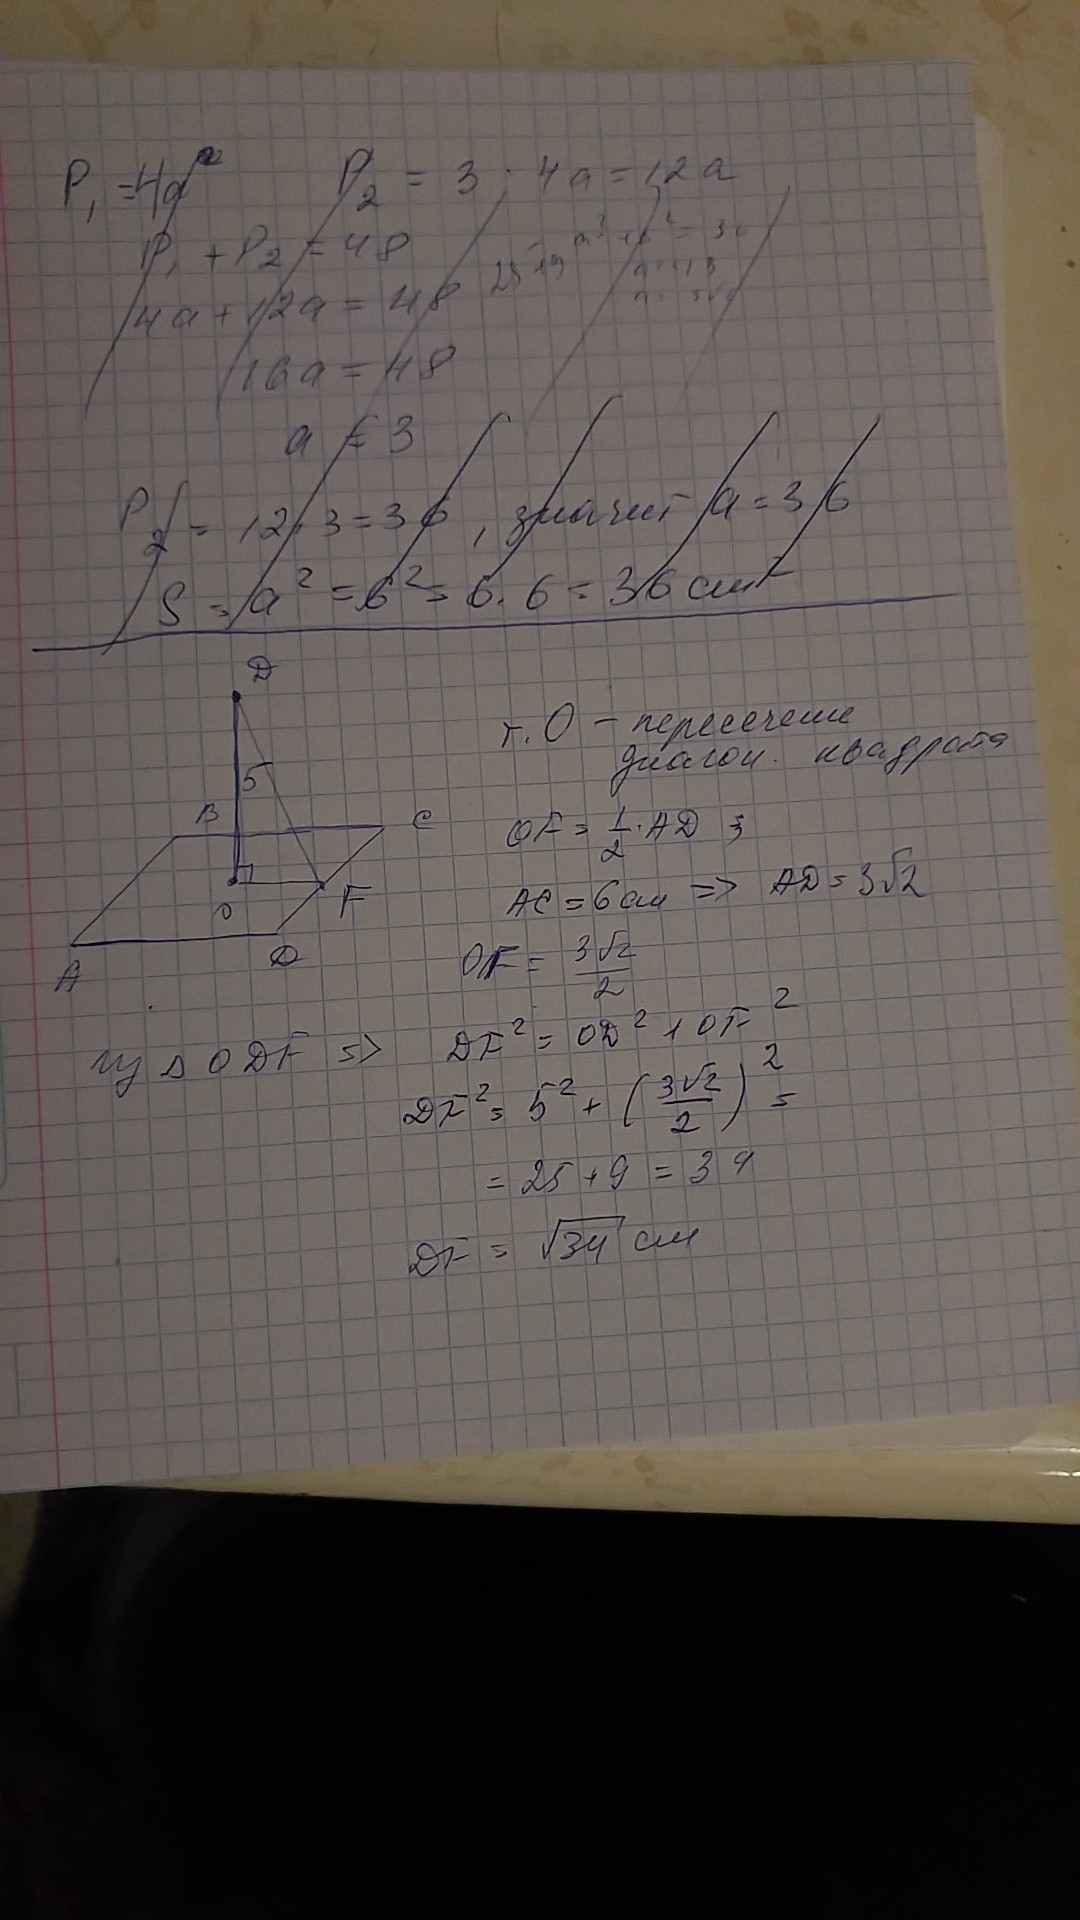 P₁ = 4a P₂ = 3 · 4a = 12a
P₁ + P₂ = 48
4a + 12a = 48
16a = 48
a = 3
P₂ = 12 · 3 = 36, значит a = 36
S = a² = 6² = 6 · 6 = 36 см²
D
5
B
C
O
F
A
D
т. O – пересечение
диагон. квадрата
OF = 1/2 · AD
AC = 6 см => AD = 3√2
OF = 3√2/2
из Δ ODF => DF² = OD² + OF²
DF² = 5² + (3√2/2)² =
= 25 + 9 = 34
DF = √34 см